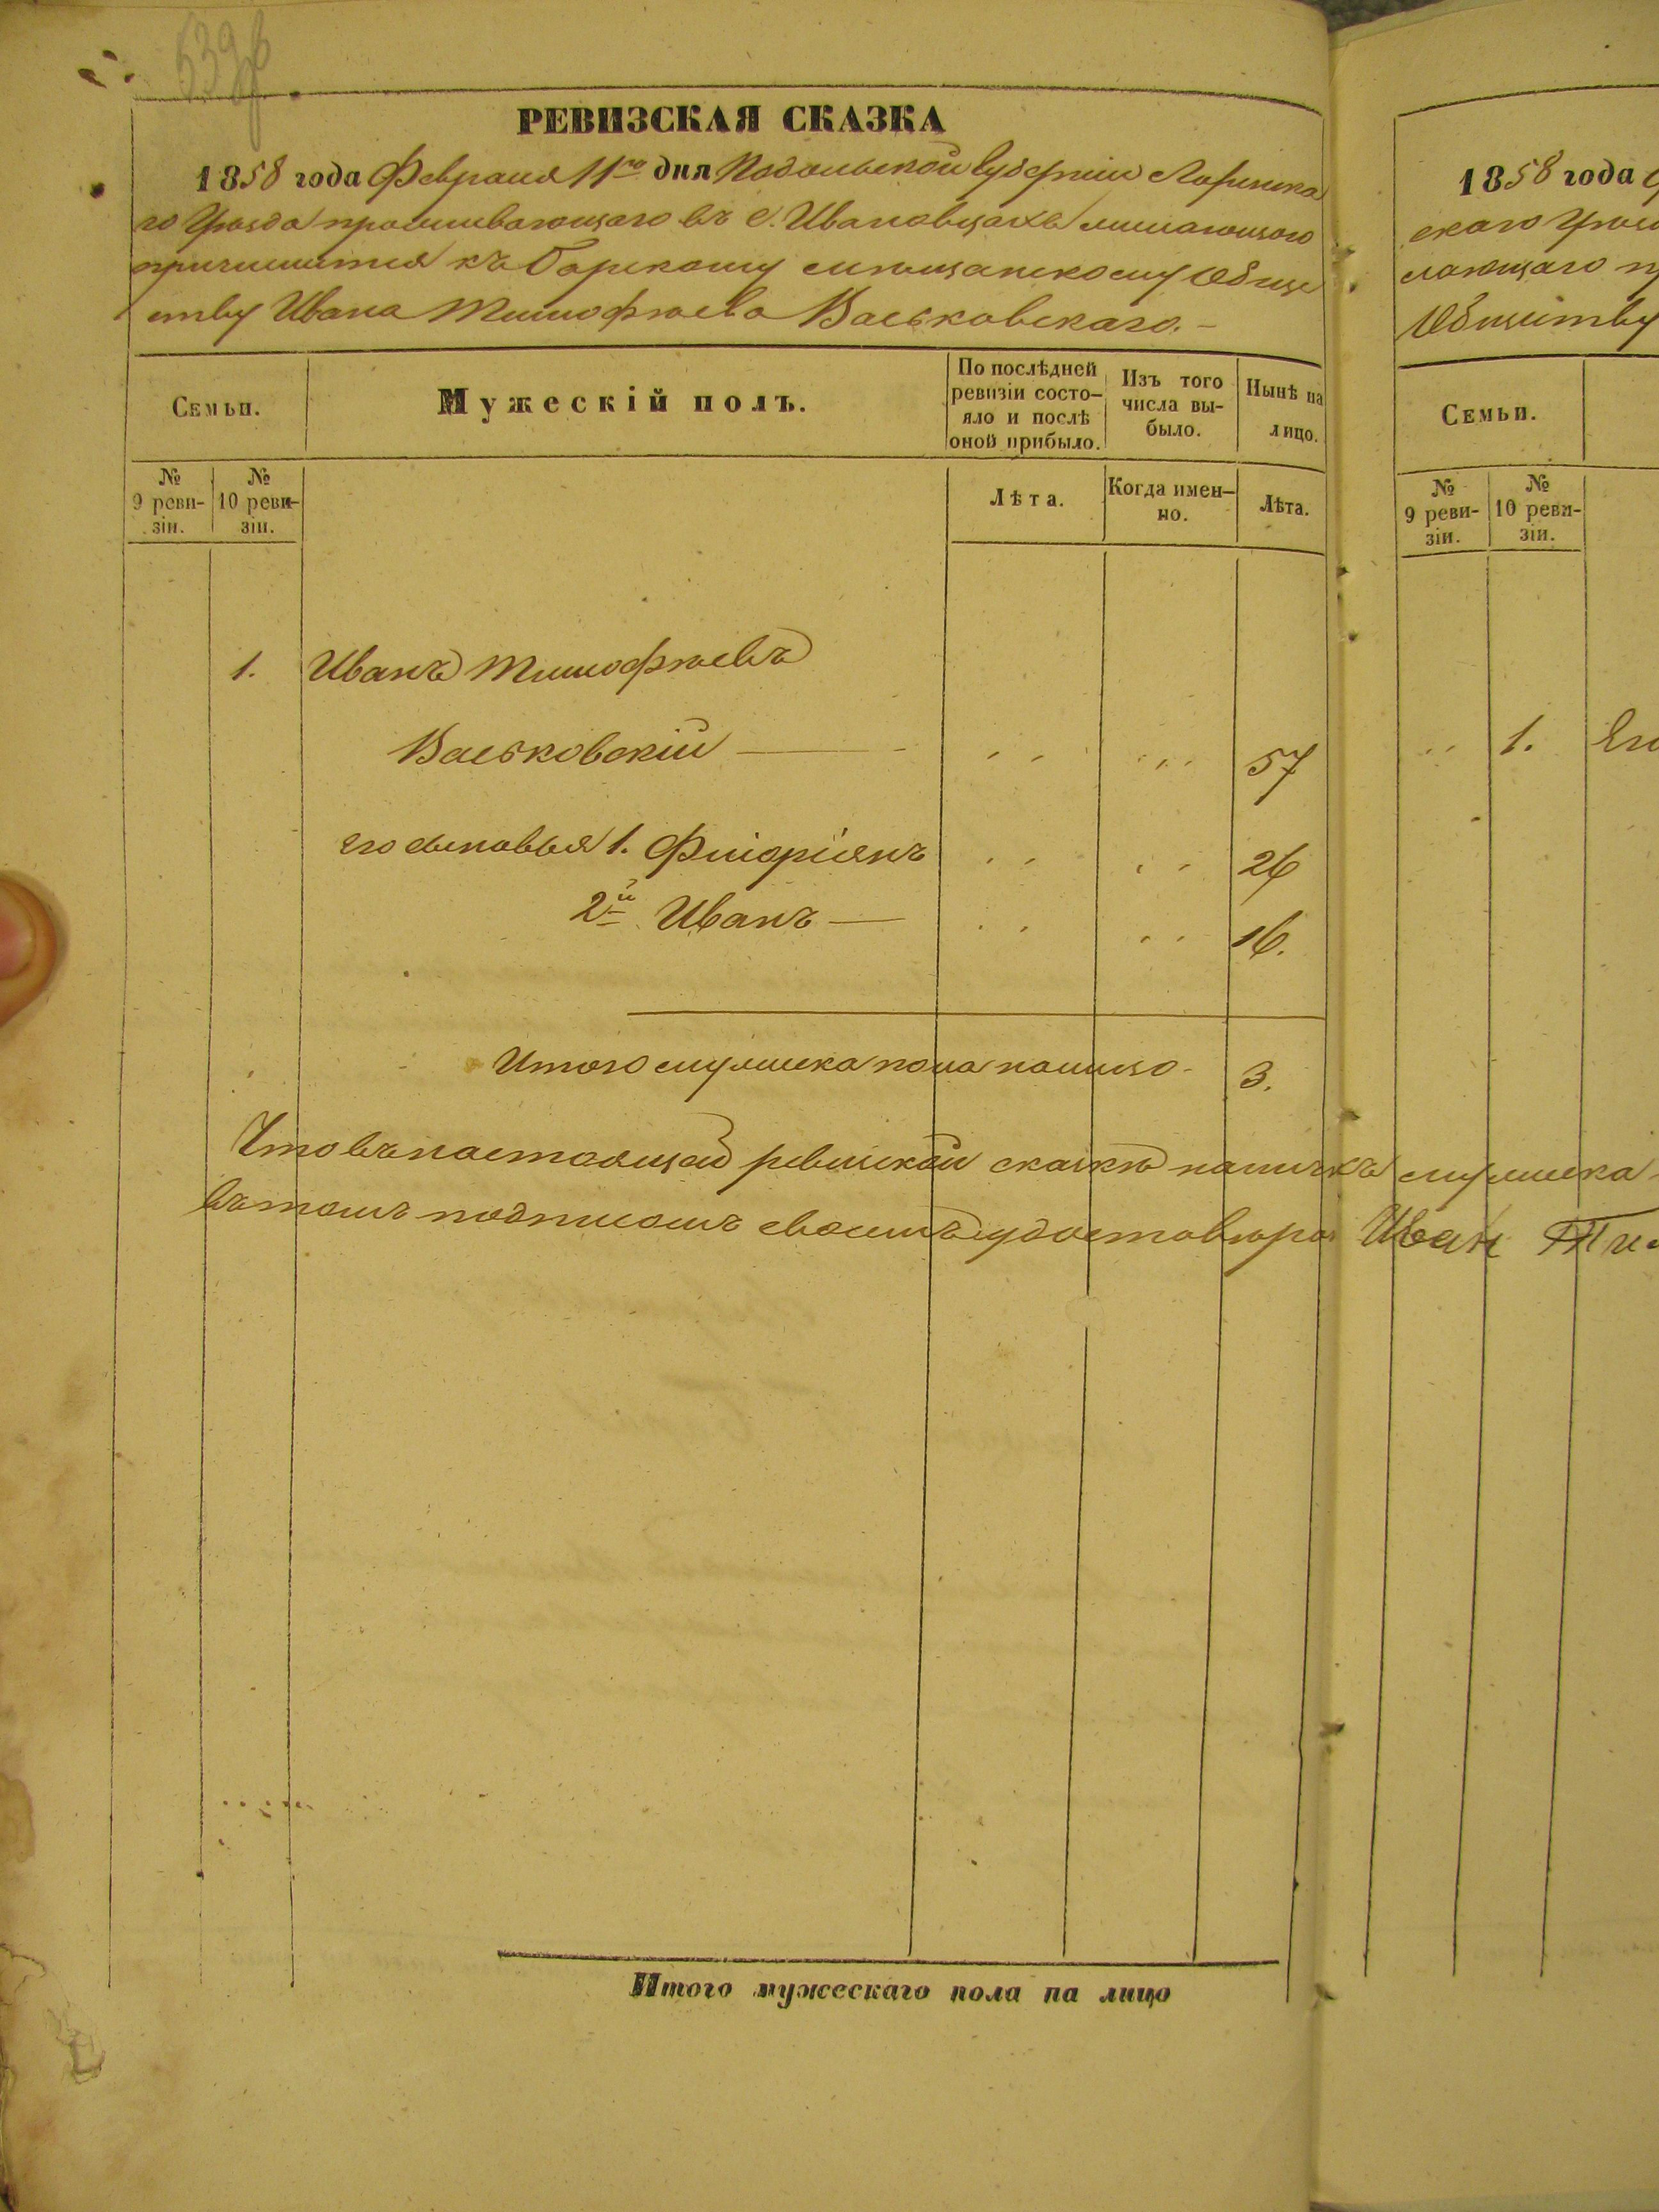 539об
РЕВИЗСКАЯ СКАЗКА
1858 года Февраля 11го дня Подольской Губерніи
го Уѣзда проживающаго въ с. Ивановцахъ желающаго
причислится къ Барскому мѣщанскому Обще
ству Ивана Тимофѣева Васьковскаго.–
Семьи.
Мужескій полъ.
По послѣдней ревизіи состо-
яло и послѣ
оной прибыло.
Изъ того
числа вы-
было.
Нынѣ на
лицо.
№
9 реви-
зіи.
№
10 реви-
зіи.
Лѣта.
Когда имен-
но.
Лѣта.
1. Иванъ Тимофѣевъ
Васьковскій — „ „ „ „ 57
его сыновья 1. Флоріянъ „ „ „ „ 26
2й Иванъ — „ „ „ „ 16.
Итого мужска пола налицо - 3.
Что въ настоящей ревизкой сказкѣ мужска
въ томъ подписомъ своимъ Иван Ти
Итого мужескаго пола на лицо
1858 года
скаго Уѣз
лающаго п
Обществу
Семьи.
№
9 реви-
зіи.
№
10 реви-
зіи.
„ 1. Его